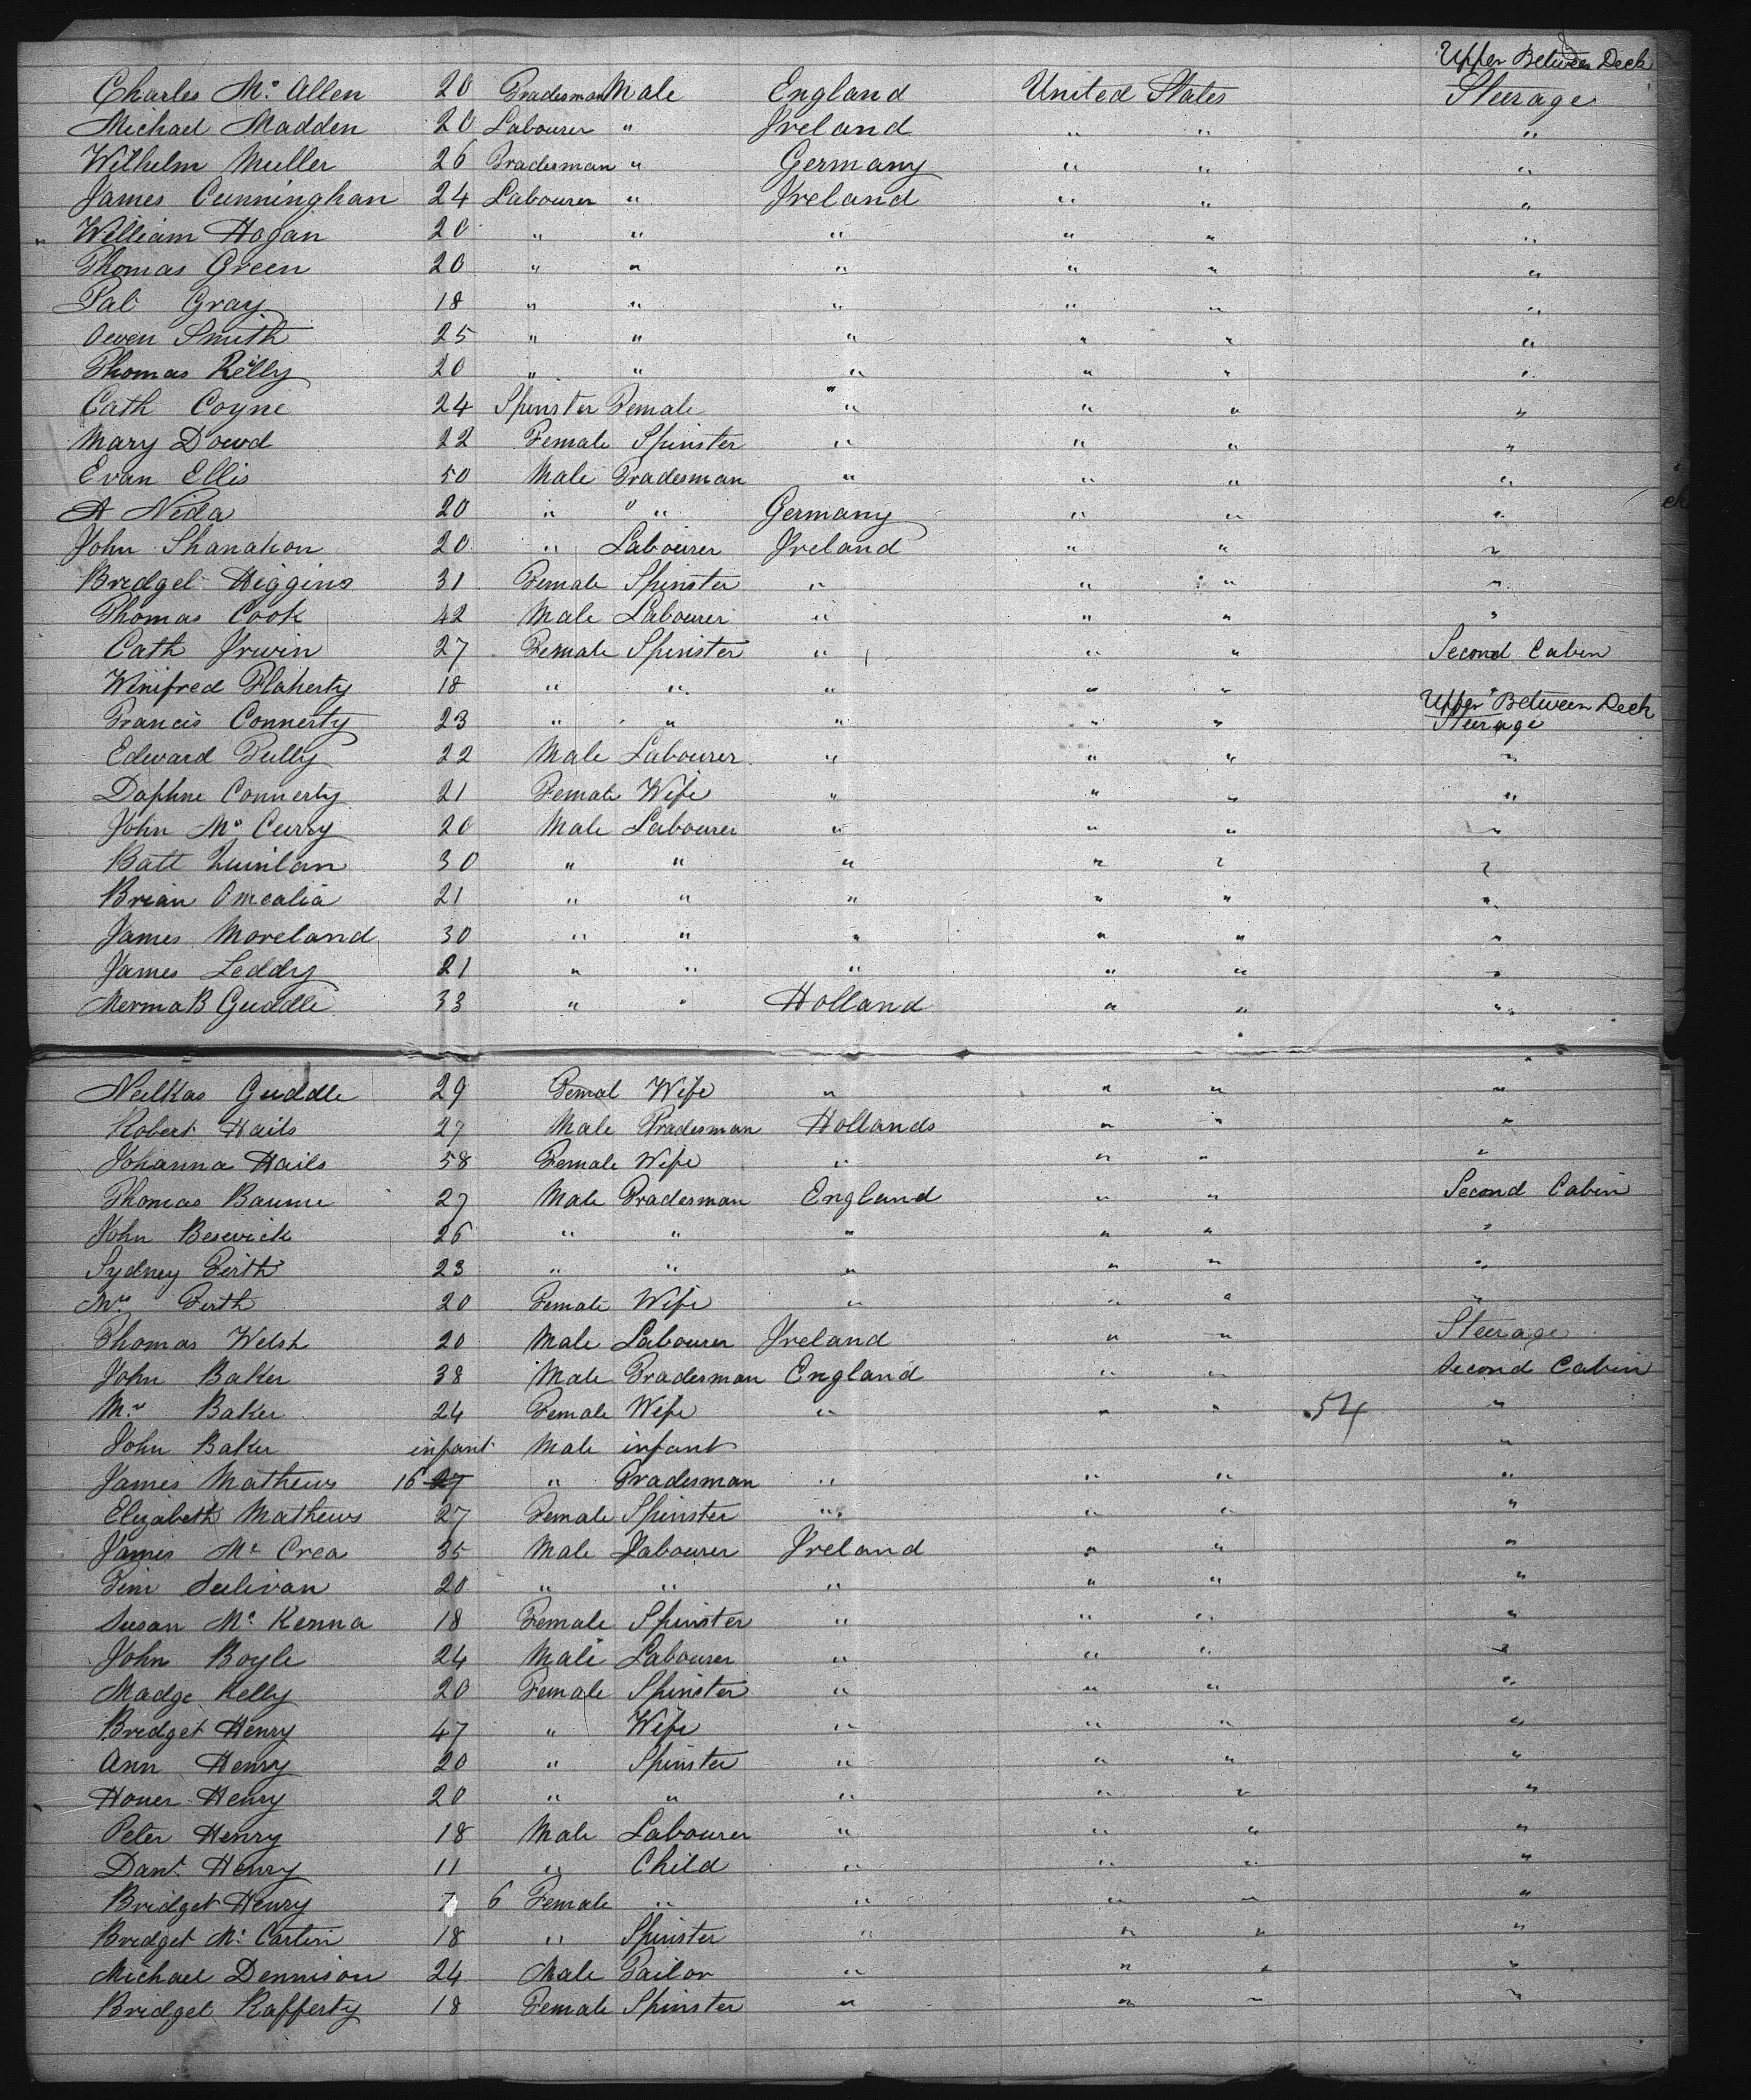 Upper Between Deck
Charles Mc Allen 20 Tradesman Male England United States Steerage
Michael Madden 20 Labourer " Ireland " " "
Wilhelm Muller 26 Tradesman " Germany " " "
James Cunninghan 24 Labourer " Ireland " " "
" William Hogan 20 " " " " " "
Thomas Green 20 " " " " " "
Pat Gray 18 " " " " " "
Owen Smith 25 " " " " " "
Thomas Reilly 20 " " " " " "
Cath Coyne 24 Spinster Female " " " "
Mary Dowd 22 Female Spinster " " " "
Evan Ellis 50 Male Tradesman " " " "
A Nida 20 " " " Germany " " "
John Shanahon 20 " Labourer Ireland " " "
Bridget Higgins 31 Female Spinster " " " "
Thomas Cook 42 Male Labourer " " " "
Cath Irwin 27 Female Spinster " " " Second Cabin
Winifred Flaherty 18 " " " " " "
Upper Between Deck
Francis Connerty 23 " " " " " Steerage
Edward Tully 22 Male Labourer " " " "
Daphne Connerty 21 Female Wife " " " "
John Mc Curry 20 Male Labourer " " " "
Batt Quinlan 30 " " " " " "
Brian Omealia 21 " " " " " "
James Moreland 30 " " " " " "
James Leddy 21 " " " " " "
Merma B Guddle 33 " " Holland " " "
Neilkas Guddle 29 Femal Wife " " " "
Robert Hails 27 Male Tradesman Hollands " " "
Johanna Hails 58 Female Wife " " " "
Thomas Baume 27 Male Tradesman England " " Second Cabin
John Beswick 26 " " " " " "
Sydney Firth 23 " " " " " "
Mrs Firth 20 Female Wife " " " "
Thomas Welsh 20 Male Labourer Ireland " " Steerage
John Baker 38 Male Tradesman England " " Second Cabin
Mrs Baker 24 Female Wife " " " 54 "
John Baker infant Male infant "
James Mathews 16 27 " Tradesman " " " "
Elizabeth Mathews 27 Female Spinster " " " "
James Mc Crea 35 Male Labourer Ireland " " "
Tim Sulivan 20 " " " " " "
Susan Mc Kenna 18 Female Spinster " " " "
John Boyle 24 Male Labourer " " " "
Madge Kelly 20 Female Spinster " " " "
Bridget Henry 47 " Wife " " " "
Ann Henry 20 " Spinster " " " "
Honer Henry 20 " " " " " "
Peter Henry 18 Male Labourer " " " "
Danl Henry 11 " Child " " " "
Bridget Henry 7 6 Female " " " " "
Bridget Mc Cartin 18 " Spinster " " " "
Michael Dennison 24 Male Tailor " " " "
Bridget Rafferty 18 Female Spinster " " " "